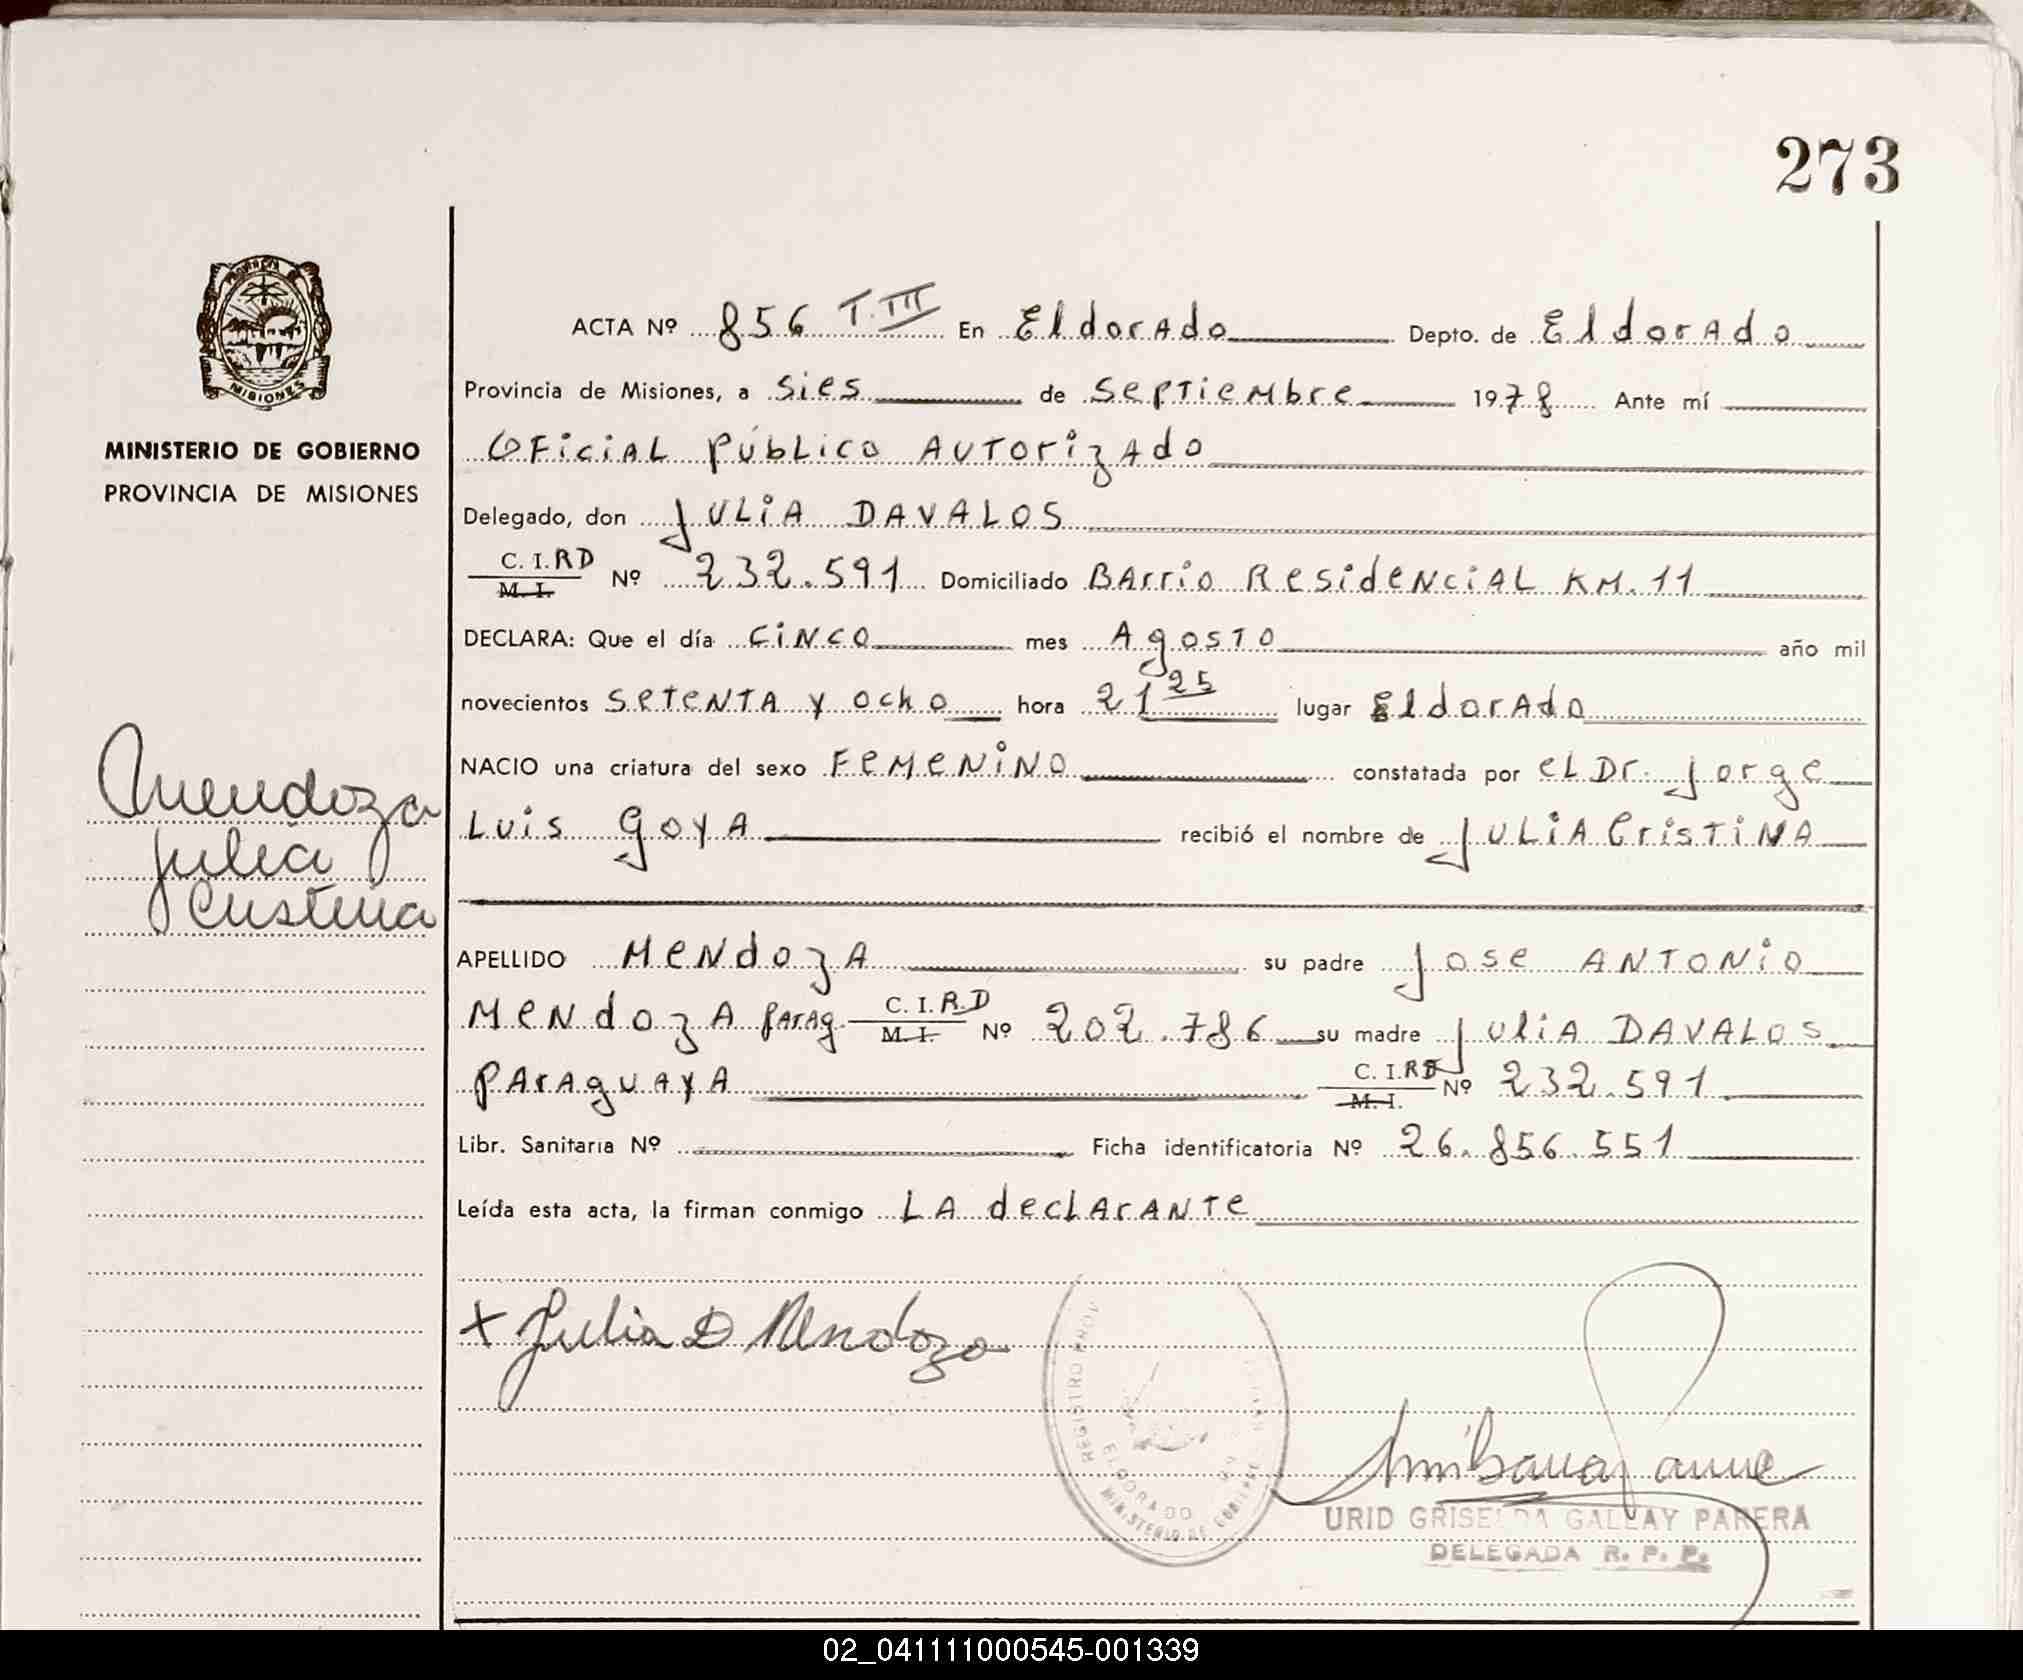 273
PROVINCIA DE
MISIONES
MINISTERIO DE GOBIERNO
PROVINCIA DE MISIONES
Mendoza
Julia
Cristina
ACTA Nº 856 T.III En Eldorado Depto. de Eldorado
Provincia de Misiones, a sies de septiembre 1978 Ante mí
Oficial Público Autorizado
Delegado, don JULIA DAVALOS
C. I. RD
M. I. Nº 232.591 Domiciliado Barrio Residencial KM. 11
DECLARA: Que el día cinco mes Agosto año mil
novecientos setenta y ocho hora 21 25 lugar Eldorado
NACIO una criatura del sexo Femenino constatada por el Dr. Jorge
Luis Goya recibió el nombre de JULIA Cristina
APELLIDO Mendoza su padre Jose ANTONIO
Mendoza Parag. C. I. R.D M. I. Nº 202.786 su madre Julia DAVALOS
Paraguaya C. I. RD M. I. Nº 232.591
Libr. Sanitaria Nº Ficha identificatoria Nº 26.856.551
Leída esta acta, la firman conmigo LA declarante
+ Julia D Mendoza
REGISTRO PROV
ELDORADO
MINISTERIO DE GOBIERNO
URID GRISELDA GALLAY PARERA
DELEGADA R. P. P.
02_041111000545-001339